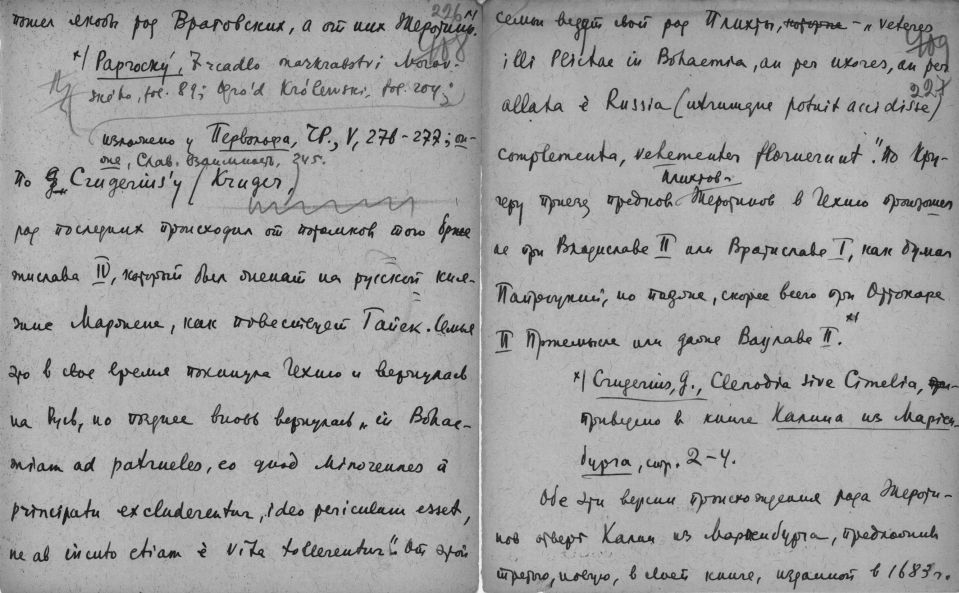 пошел якобы род Вратовских, а от них Жеротины.
226 x)
108
x) Paprocký, Zrcadlo markrabstvi Morav-
ského, fol. 89; Ogród Królewski, fol. 204;
изложено у Первольфа, V, 276-277; он-
же, Слав. взаимность, 245.
По Crugerius'у (Kruger,)
род последних происходил от потомков того Брже-
тислава IV, который был женат на русской кня-
жне Маржене, как повествует Гайек. Семья
эта в свое время покинула Чехию и вернулась
на Русь, но позднее вновь вернулась „in Bohae-
miam ad patrueles, eo quod Minorennes à
principatu excluderentur, ideo periculum esset,
ne ab incuto etiam è vita tollerentur". От этой
семьи ведут свой род Плихты, которые – „veteres
109
illi Plichae in Bohaemia, an per uxores, an per
227
allata è Russia (utrumque potuit accidisse)
complementa, vehementer floruerunt". По Крю-
Плихтов-
геру приезд предков Жеротинов в Чехию произошел
не при Владиславе II или Вратиславе I, как думал
Папроцкий, но позже, скорее всего при Оттокаре
II Пржемысле или даже Вацлаве II. x)
x) Crugerius, G., Clenodia sive Cimelia,
приведено в книге Калина из Мариен-
бурга, стр. 2-4.
Обе эти версии происхождения рода Жероти-
нов отверг Калин из Мариенбурга, предложив
третью, новую, в своей книге, изданной в 1683 г.